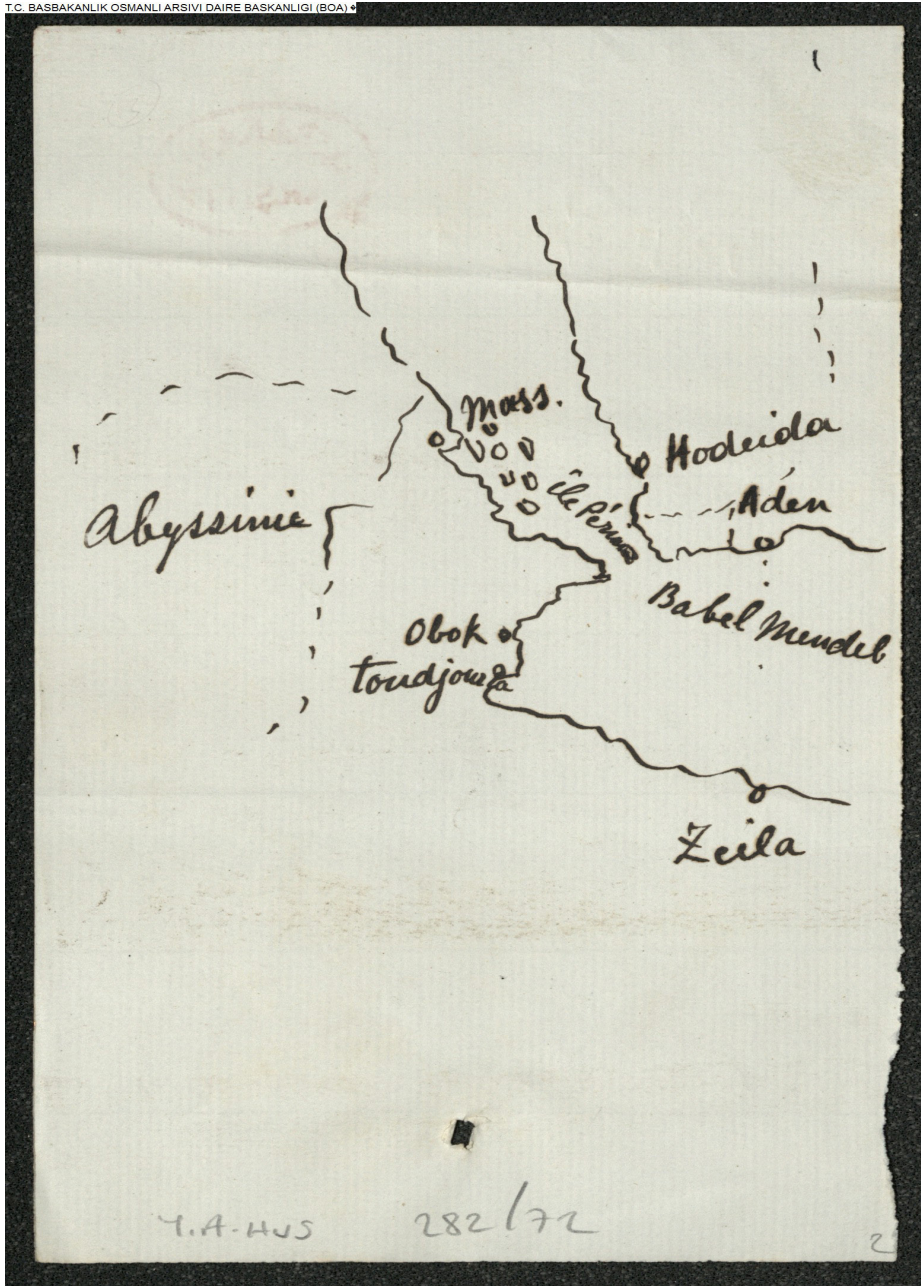 T.C. BASBAKANLIK OSMANLI ARSIVI DAIRE BASKANLIGI (BOA)
Mass.
Hodeida
Aden
île Périm
Abyssinie
Babel Mendeb
Obok
Toudjoura
Zeila
Y.A-HUS 282/72
2